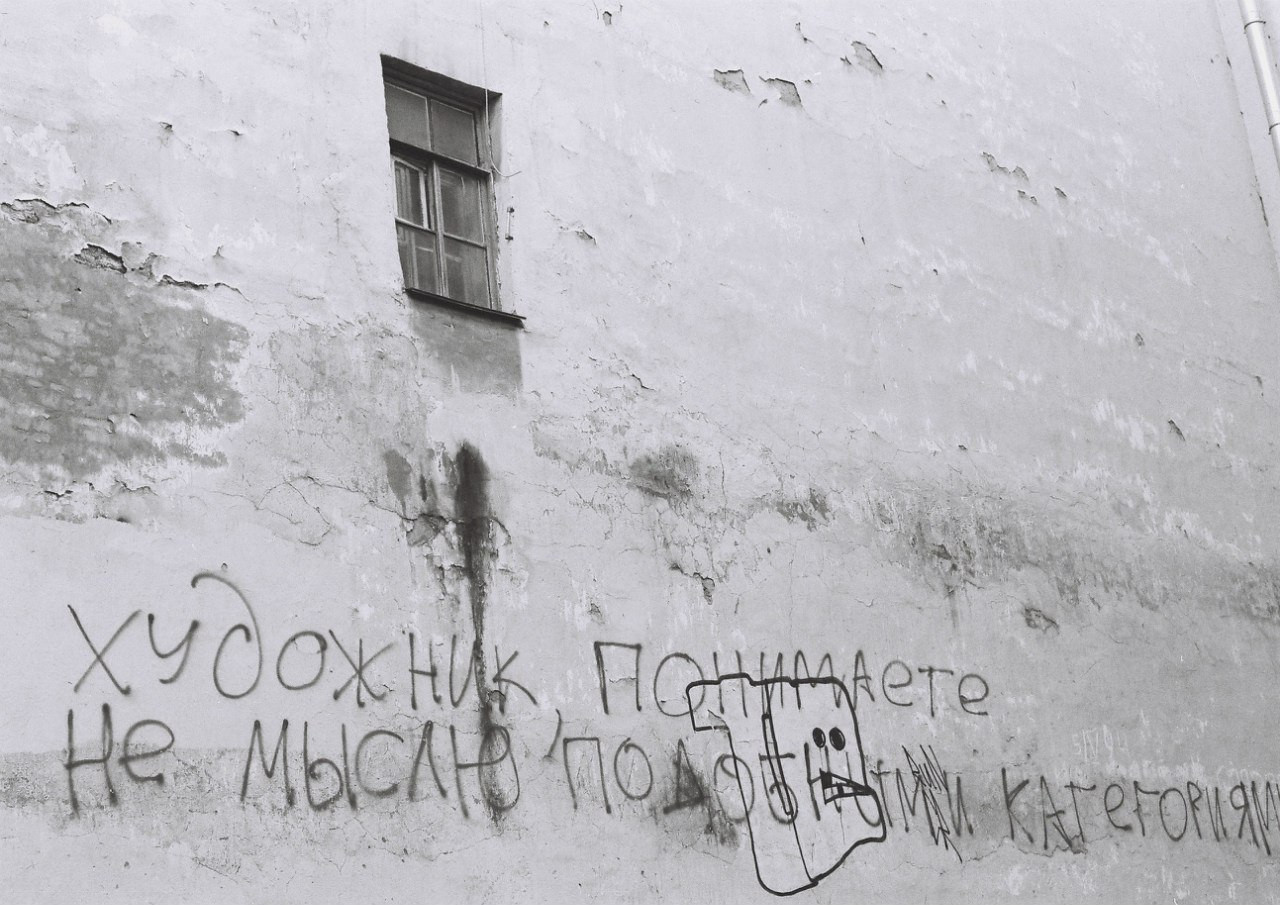 Художник, понимаете
Не мыслю подобными категориями